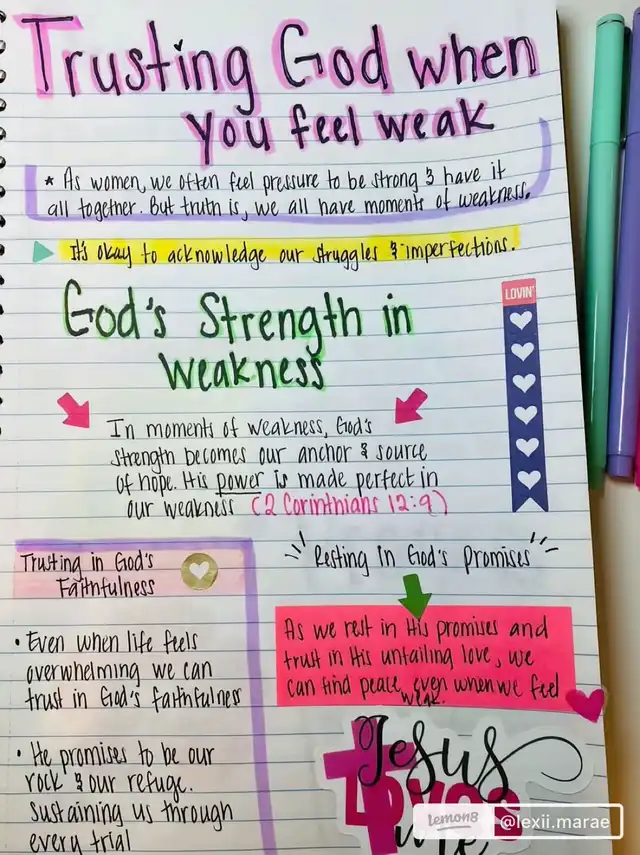 Trusting God when
you feel weak
* As women, we often feel pressure to be strong & have it
all together. But truth is, we all have moments of weakness.
It's okay to acknowledge our struggles & imperfections.
God's Strength in
weakness
LOVIN'
In moments of weakness, God's
strength becomes our anchor & source
of hope. His power is made perfect in
our weakness (2 Corinthians 12:9)
Trusting in God's
Faithfulness
• Even when life feels
overwhelming we can
trust in God's faithfulness
• He promises to be our
rock & our refuge.
Sustaining us through
every trial
Resting in God's Promises
As we rest in His promises and
trust in His unfailing love, we
can find peace, even when we feel
weak.
Jesus
Loves
me
Lemon8 @lexii.marae